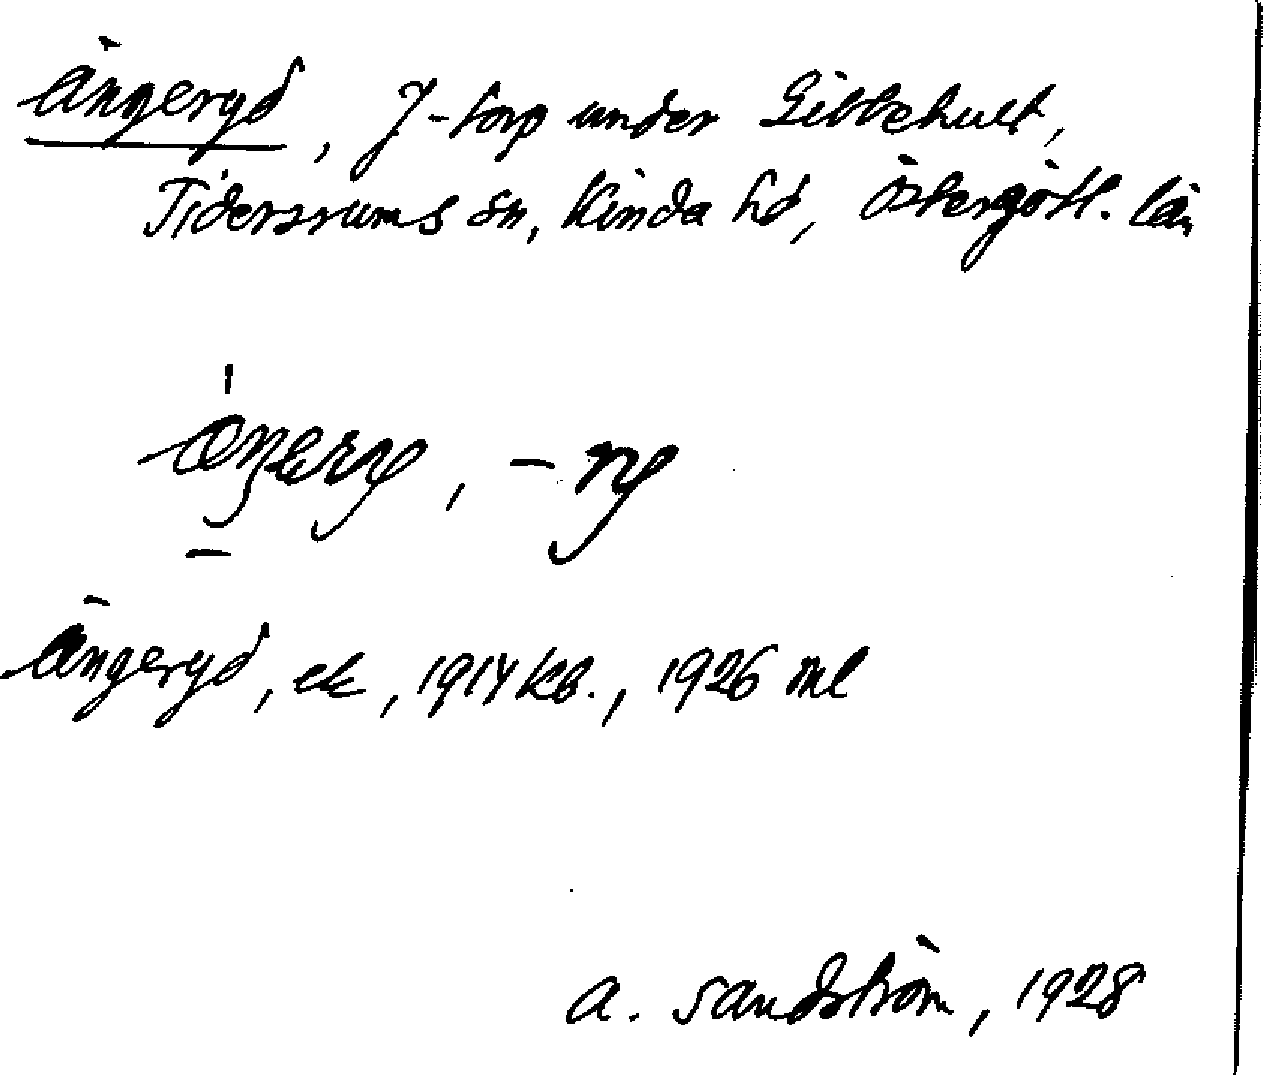 Ängeryd, J-torp under Gibbehult,
Tidersrums sn, Kinda hd, Östergötl. län
Ängeryd, ek, 1914 kb., 1926 ml
A. Sandström, 1928